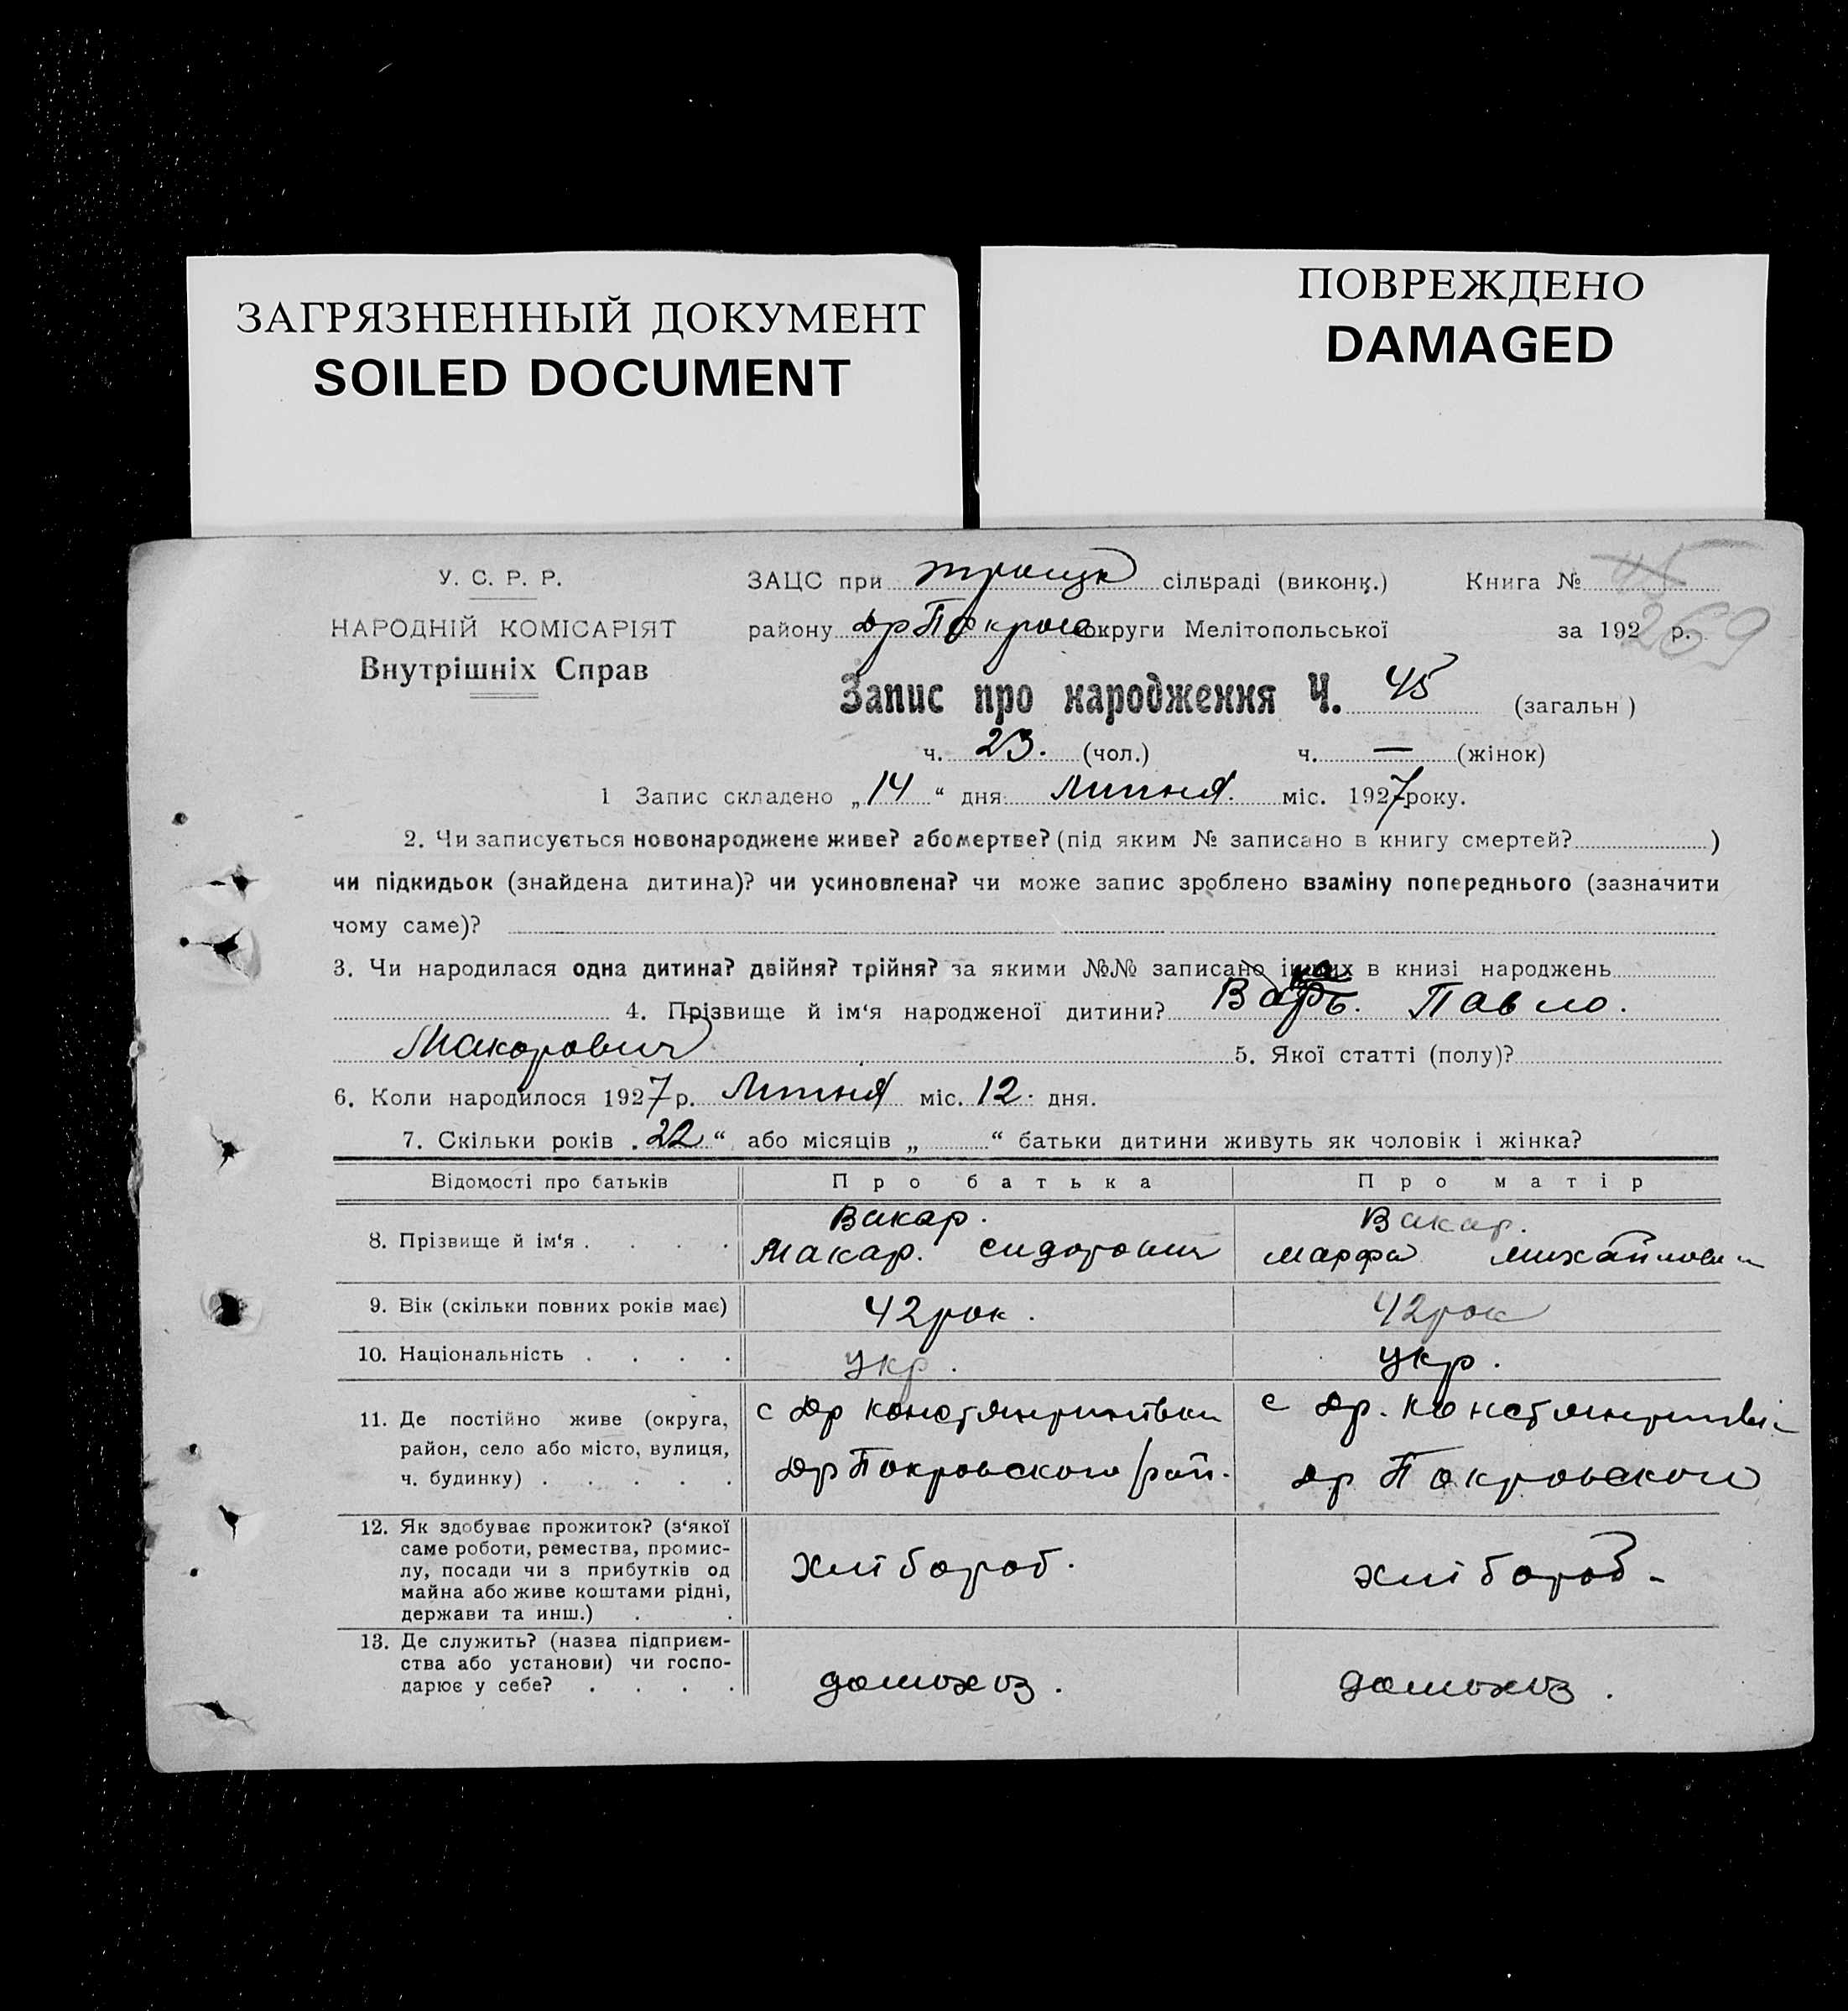 ЗАГРЯЗНЕННЫЙ ДОКУМЕНТ
SOILED DOCUMENT
ПОВРЕЖДЕНО
DAMAGED
У. С. Р. Р.
НАРОДНІЙ КОМІСАРІЯТ
Внутрішніх Справ
ЗАЦС при сільраді (виконк.) Книга № 45
району Др Покров округи Мелітопольської за 192 р.
269
Запис про народження Ч. 45 (загальн)
ч. 23. (чол.) ч. — (жінок)
1 Запис складено „14“ дня Липня. міс. 1927 року.
2. Чи записується новонароджене живе? або мертве? (під яким № записано в книгу смертей? )
чи підкидьок (знайдена дитина)? чи усиновлена? чи може запис зроблено взаміну попереднього (зазначити
чому саме)?
3. Чи народилася одна дитина? двійня? трійня? за якими №№ записано інших в книзі народжень
4. Прізвище й ім‘я народженої дитини? Павло.
Макарович 5. Якої статті (полу)?
6. Коли народилося 1927 р. Липня міс. 12. дня.
7. Скільки років „22“ або місяців „ “ батьки дитини живуть як чоловік і жінка?
Відомості про батьків Про батька Про матір
8. Прізвище й ім‘я . . . . Вакар. Макар. Сидорович Вакар. Марфа
9. Вік (скільки повних років має) 42 рок. 42 рок
10. Національність . . . . укр. укр.
11. Де постійно живе (округа,
район, село або місто, вулиця,
ч. будинку) . . . . .
с Др Константинівки
Др Покровского рай.
с Др.
Др Покровского
12. Як здобуває прожиток? (з‘якої
саме роботи, ремества, промис-
лу, посади чи з прибутків од
майна або живе коштами рідні,
держави та инш.) . .
хлібороб.
хлібороб.
13. Де служить? (назва підприєм-
ства або установи) чи госпо-
дарює у себе? . . . .
домохоз.
домохоз.